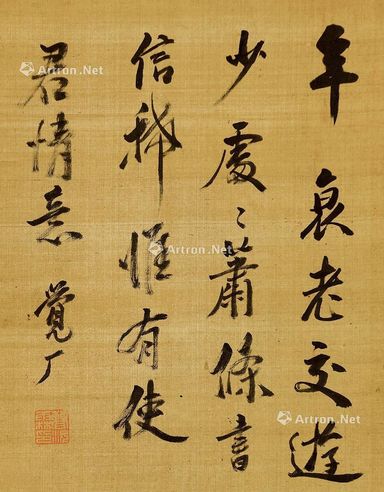 年衰老交遊
少處〻蕭條書
信稀惟有使
君情意
覺厂
Artron.Net
Artron.Net
Artron.Net
Artron.Net